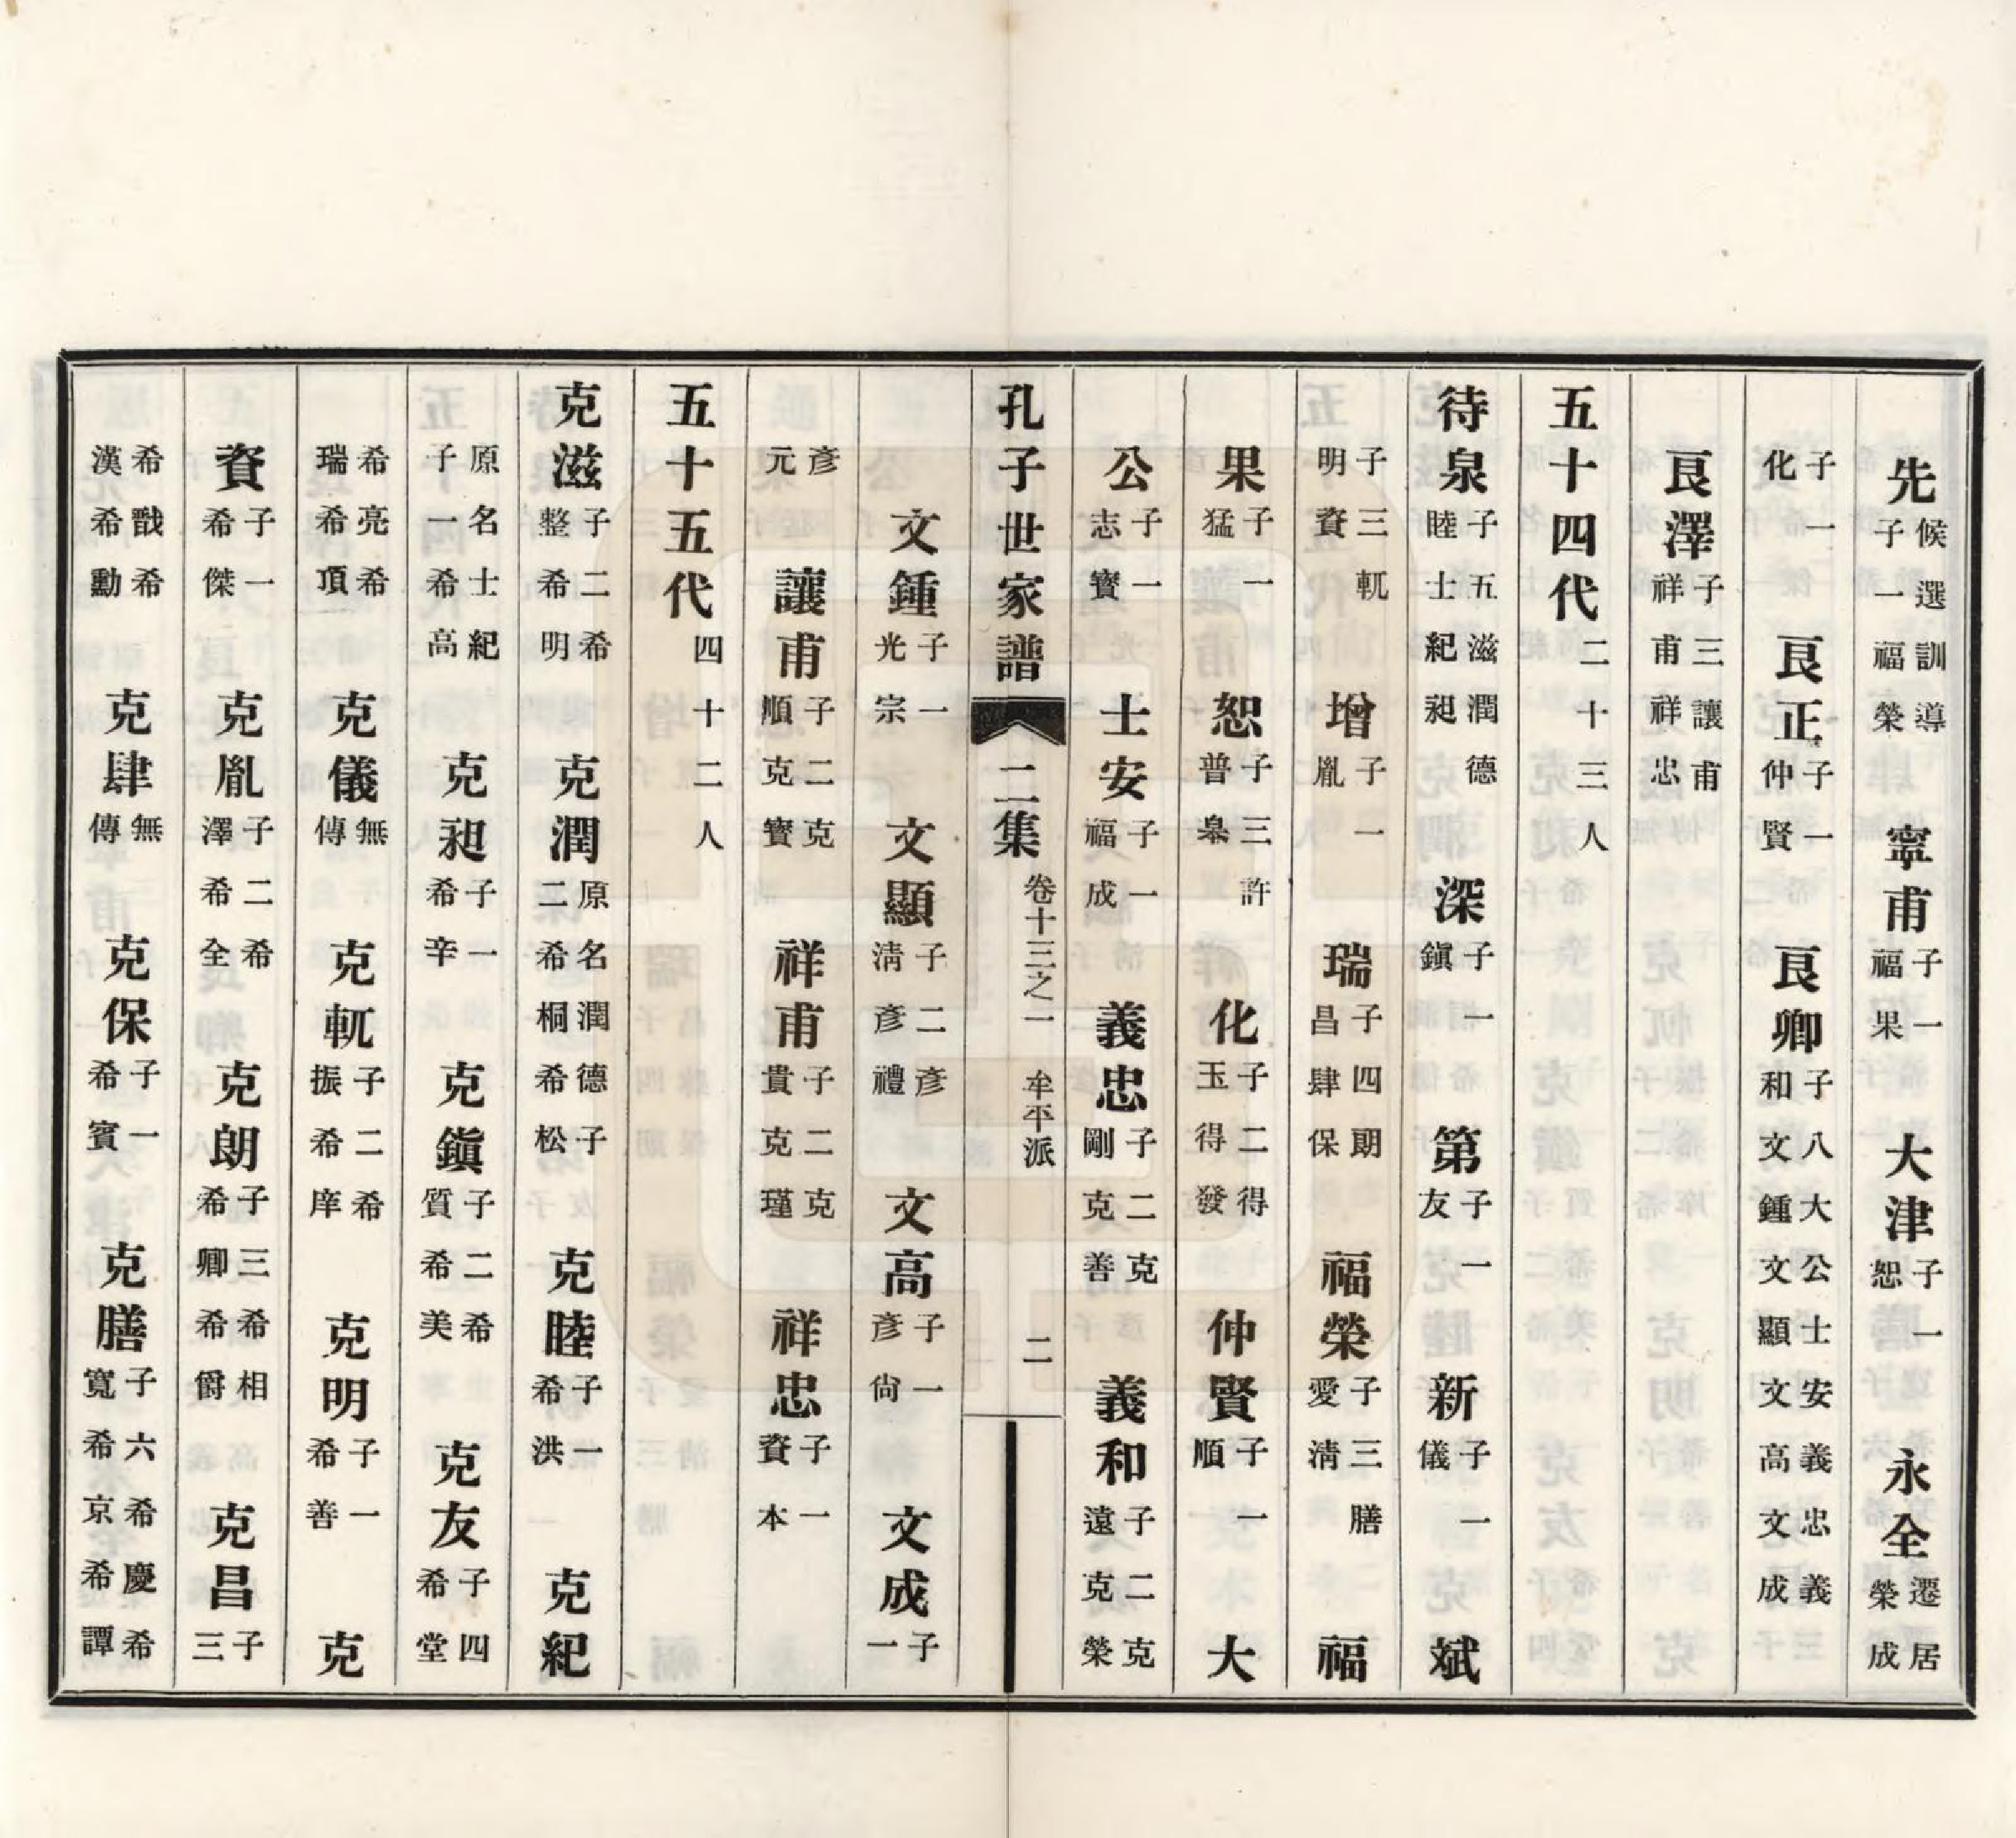 先候選訓導子一福榮 寧甫子一福果 大津子一恕 永全遷居榮成
子一化 良正子一仲賢 良卿子八大公士安義忠義和文鍾文顯文高文成
良澤子三讓甫祥甫祥忠
五十四代二十三人
待泉子五滋潤德睦士紀昶 深子一鎮 第子一友 新子一儀 斌
子三軏明資 增子一胤 瑞子四朗昌肆保 福榮子三膳愛淸 福
果子一猛 恕子三許普皋 化子二得玉得發 仲賢子一順 大
公子一志寶 士安子一福成 義忠子二克剛克善 義和子二克遠克榮
孔子世家譜 二集 卷十三之一 牟平派 二
文鍾子一光宗 文顯子二彥淸彥禮 文高子一彥尙 文成子一
彥元 讓甫子二克順克寶 祥甫子二克貴克瑾 祥忠子一資本
五十五代四十二人
克滋子二希整希明 克潤原名潤德子二希桐希松 克睦子一希洪 克紀
原名士紀子一希高 克昶子一希辛 克鎮子二希質希美 克友子四希堂
希亮希瑞希項 克儀無傳 克軏子二希振希庠 克明子一希善 克
資子一希傑 克胤子二希澤希全 克朗子三希相希卿希爵 克昌子三
希戩希漢希勳 克肆無傳 克保子一希賓 克膳子六希慶希寬希京希譚